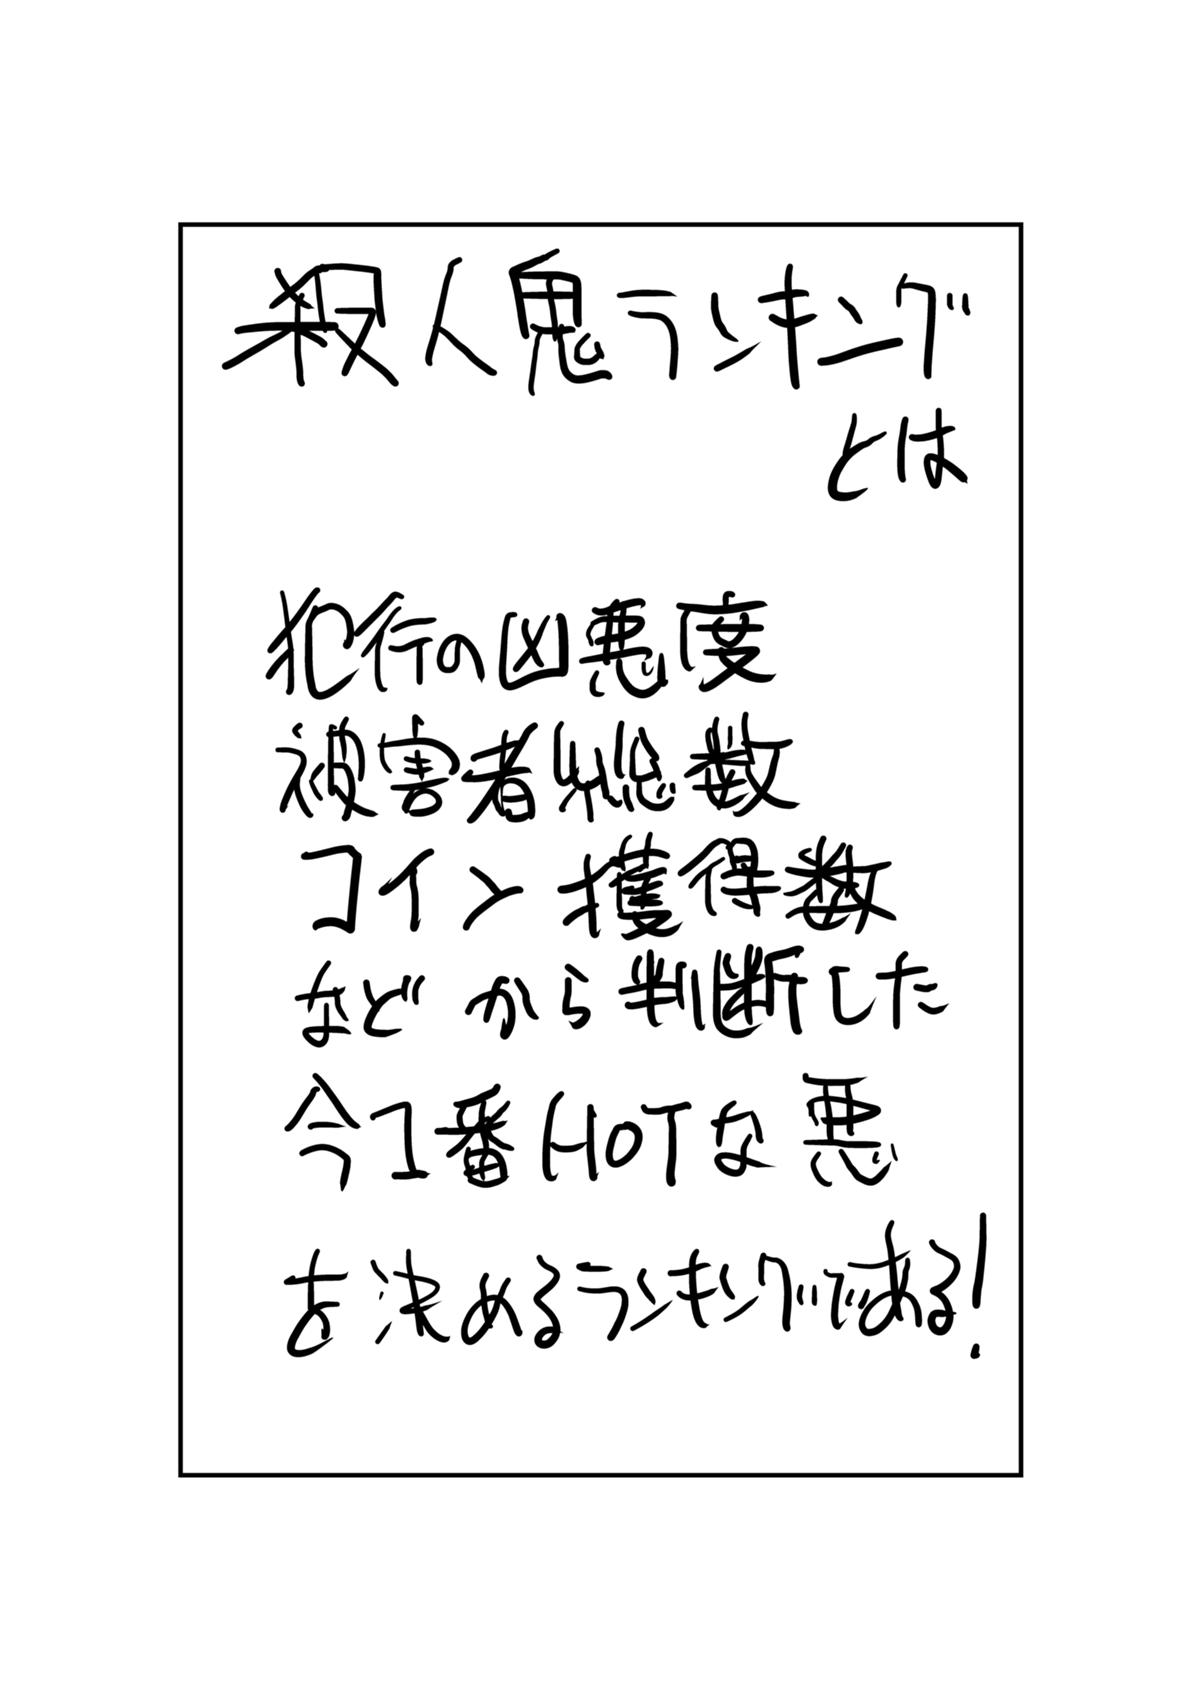 殺人鬼ランキング
とは
犯行の凶悪度
被害者総数
コイン獲得数
などから判断した
今1番HOTな悪
を決めるランキングである!